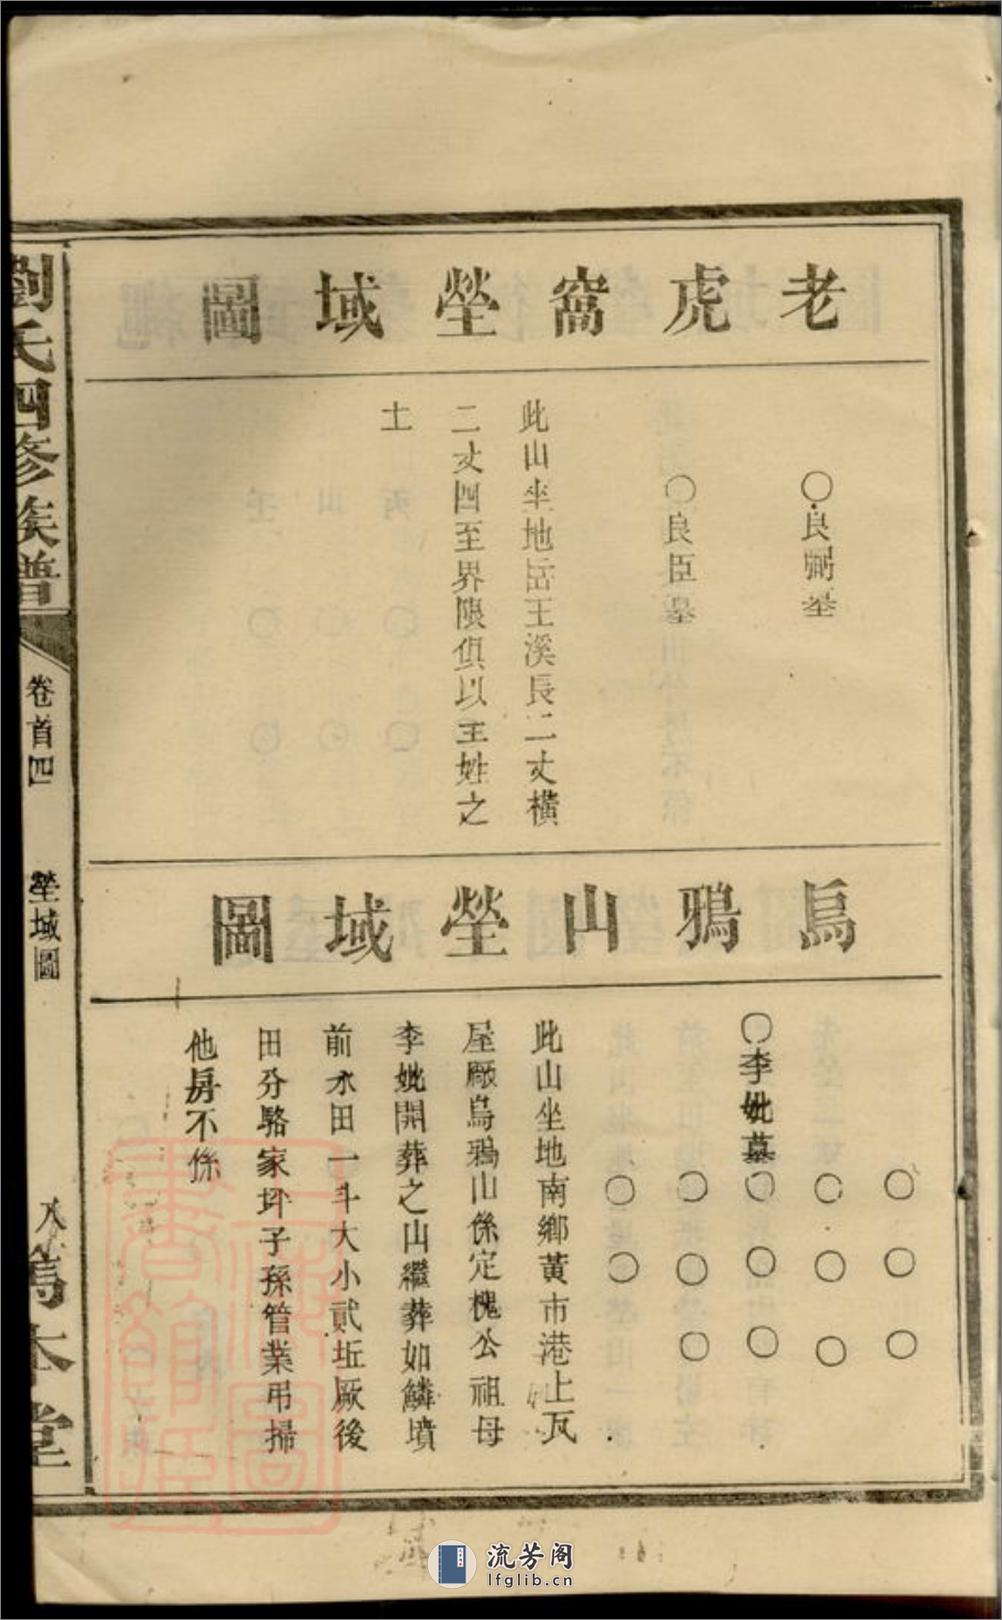 老虎窩塋域圖
〇良弼墓
〇良臣墓
此山坐地岳王溪長二丈橫
二丈四至界限俱以王姓之
土
烏鴉山塋域圖
〇〇〇
〇〇〇
〇李妣墓〇〇〇
〇〇〇
〇〇
此山坐地南鄉黃市港上瓦
屋廠烏鴉山係定槐公祖母
李妣開葬之山繼葬如鱗墳
前水田一斗大小貳坵厥後
田分駱家坪子孫管業弔掃
他房不係
劉氏四修族譜
卷首四
塋域圖
八
篤本堂
流芳阁
lfglib.cn